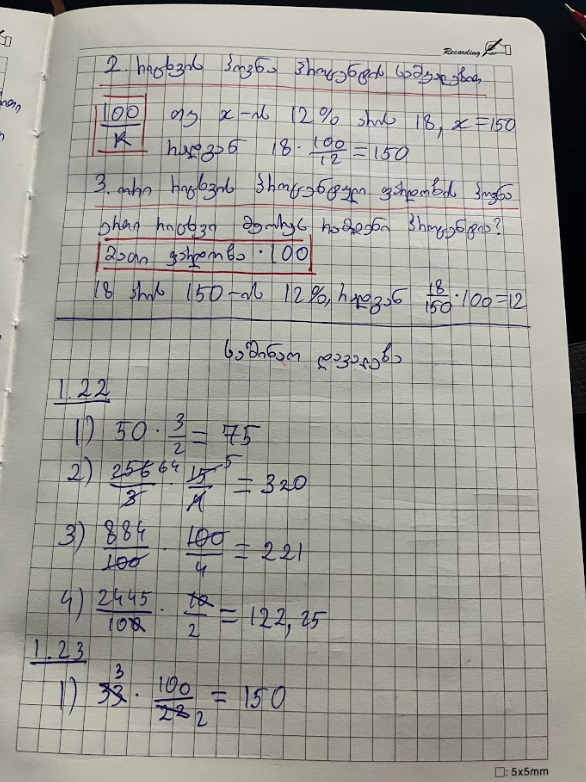 Recording
2. რიცხვის პოვნა პროცენტის საშუალებით
100/k თუ x-ის 12% არის 18, x=150
რადგან 18 · 100/12 = 150
3. ორი რიცხვის პროცენტული ფარდობის პოვნა
ერთი რიცხვი მეორეს რამდენი პროცენტია?
მათი ფარდობა · 100
18 არის 150-ის 12%, რადგან 18/150 · 100 = 12
საშინაო დავალება
1.22
1) 50 · 3/2 = 75
2) 256 64/3 · 15 5/4 = 320
3) 884/100 · 100/4 = 221
4) 2445/100 · 10/2 = 122,25
1.23
1) 33 3 · 100/22 2 = 150
□: 5x5mm